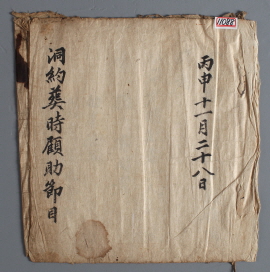 丙申十一月二十八日
洞約葬時顧助節目